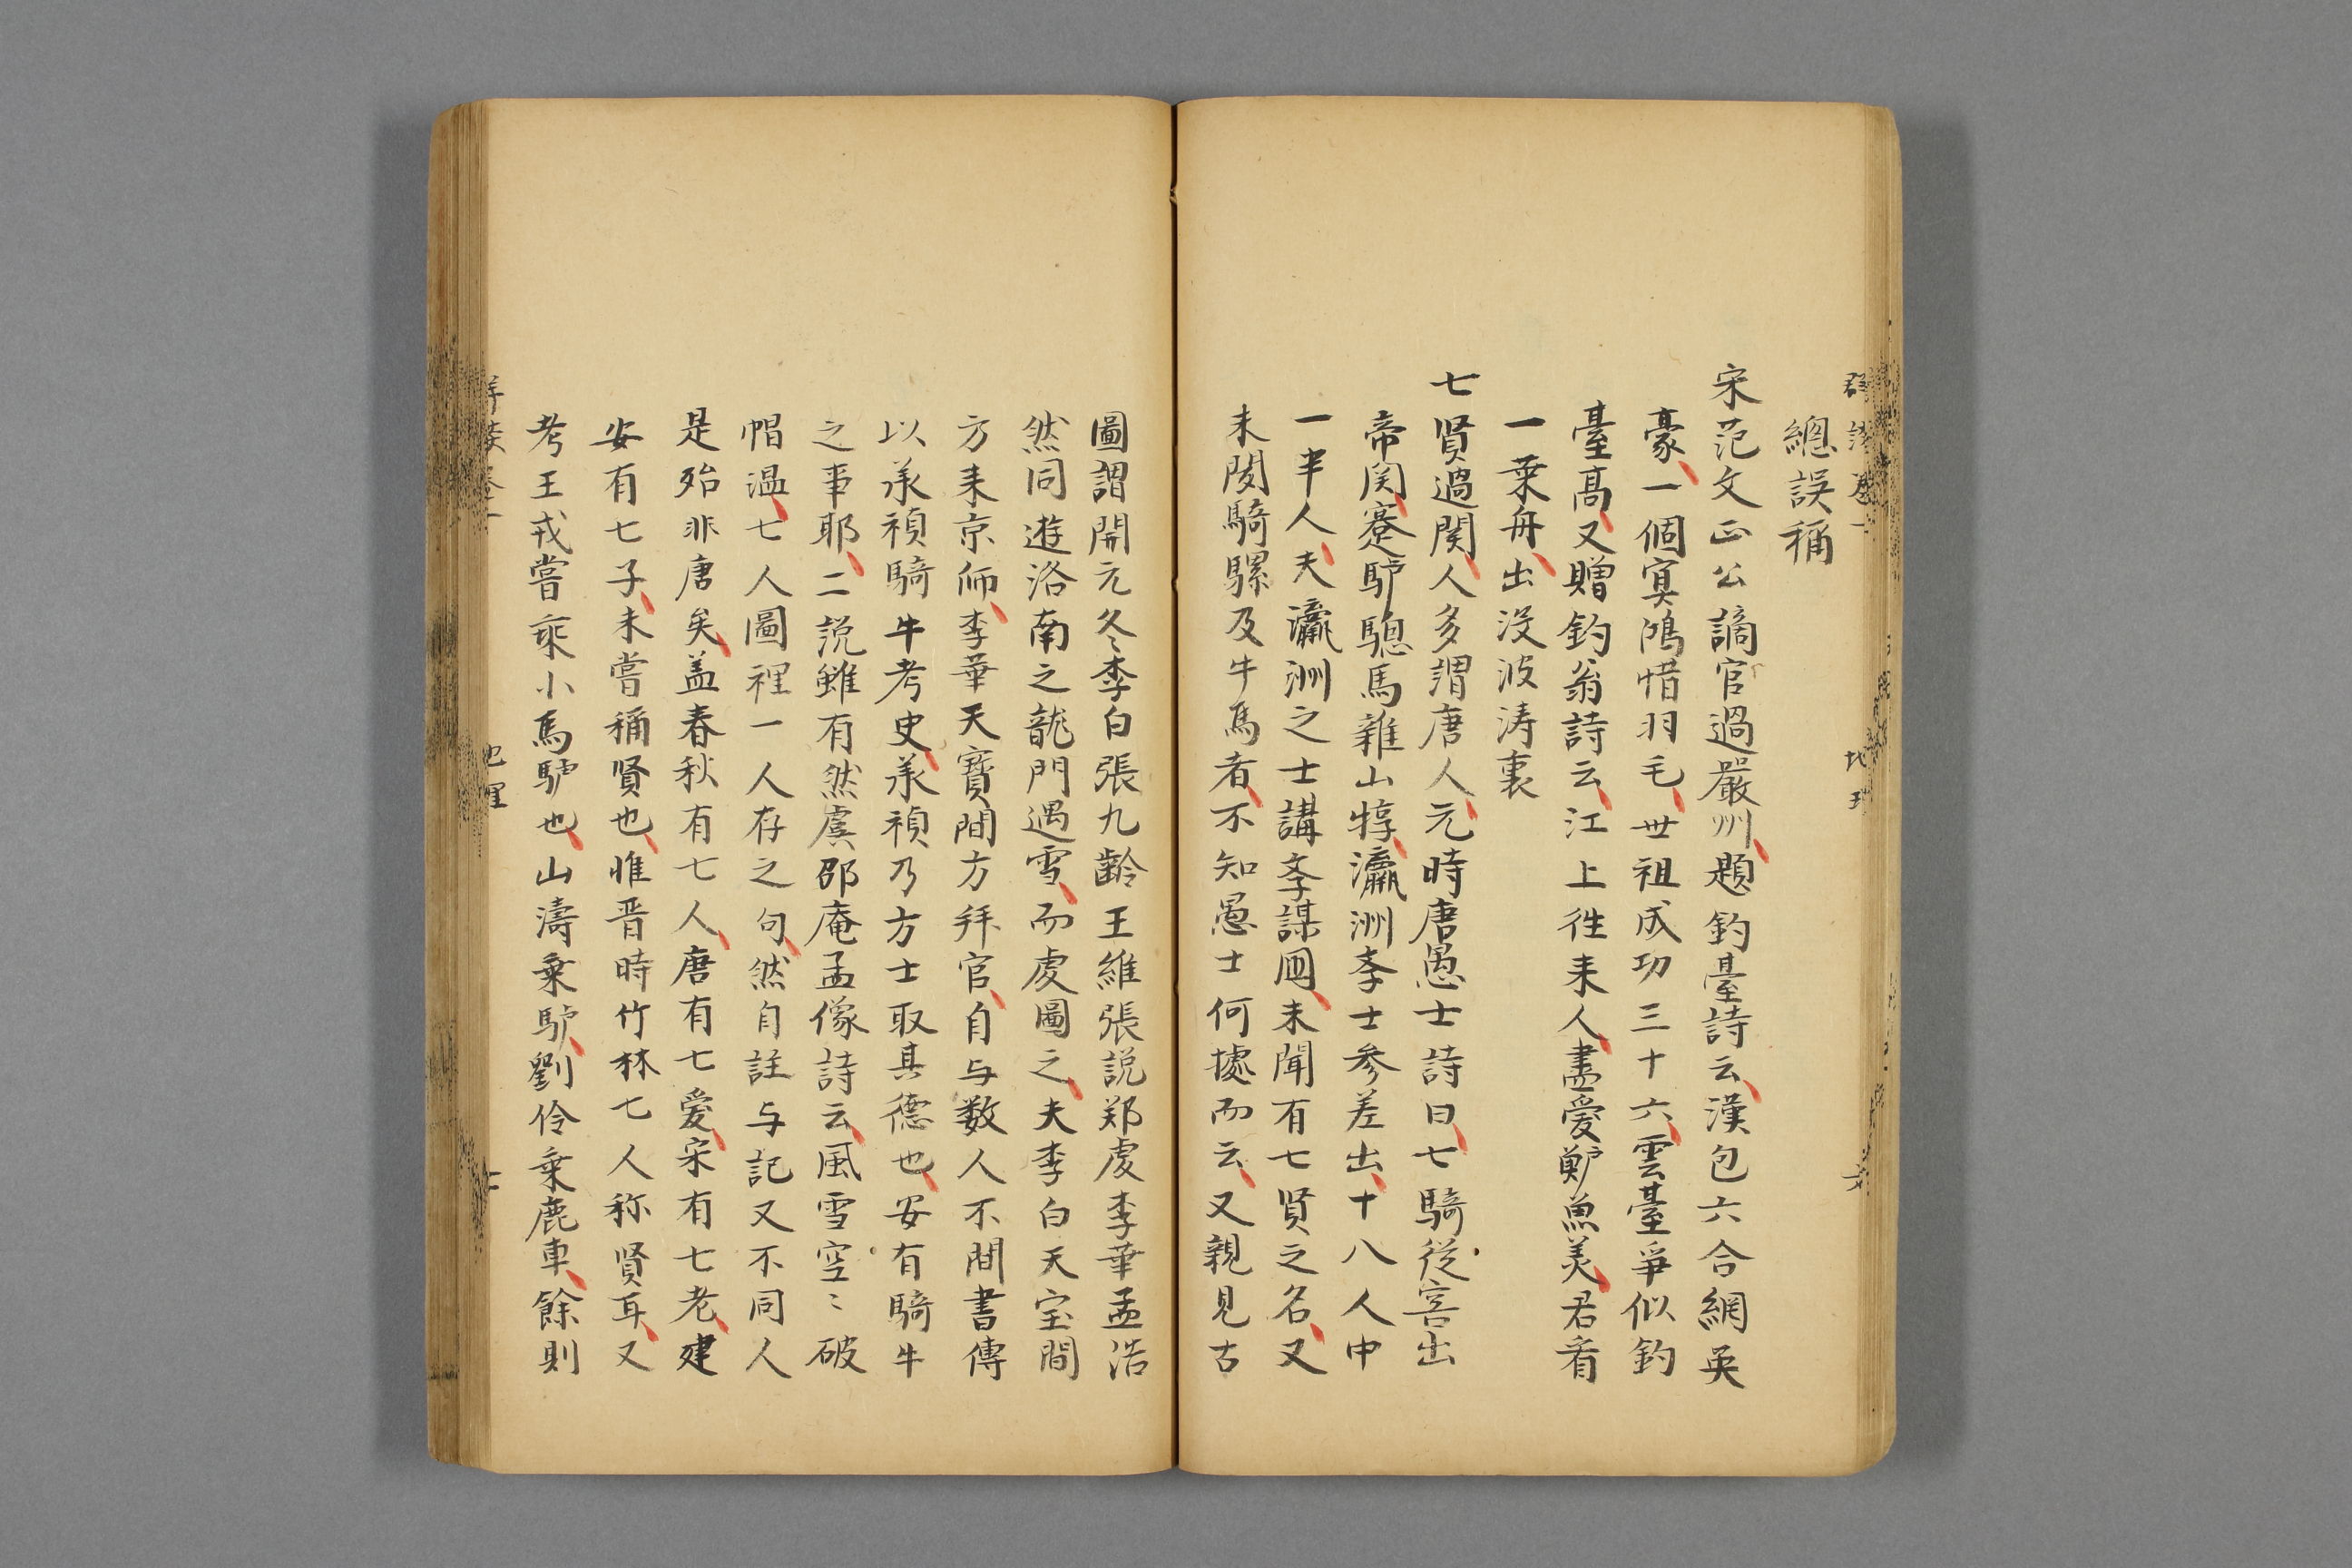 總誤稱
宋范文正公謫官過嚴州題釣臺詩云漢包六合網英
豪一個冥鴻惜羽毛世祖成功三十六雲臺爭似釣
臺髙又贈釣翁詩云江上徃来人盡愛鱸魚美君看
一乗舟出没波涛裏
七賢過関人多謂唐人元時唐愚士詩曰七騎従容出
帝関蹇驴騘馬雜山牸瀛洲李士参差出十八人中
一半人夫瀛洲之士講李謀囯未聞有七賢之名又
未閔騎騾及牛馬者不知愚士何據而云又親見古
圖謂開元冬李白張九齡王維張説郑虔李華孟浩
然同遊洛南之龍門遇雪而虔圖之夫李白天宝間
方来京师李華天寳間方拜官自与数人不間書傳
以承禎騎牛考史承禎乃方士取其德也安有騎牛
之事耶二説雖有然虞邵庵孟像詩云風雪空〻破
帽温七人圖裡一人存之句然自註与記又不同人
是殆非唐矣盖春秋有七人唐有七爱宋有七老建
安有七子未嘗稱賢也惟晋時竹林七人称賢耳又
考王戎嘗乘小馬驴也山濤乗馿劉伶乗鹿車餘則